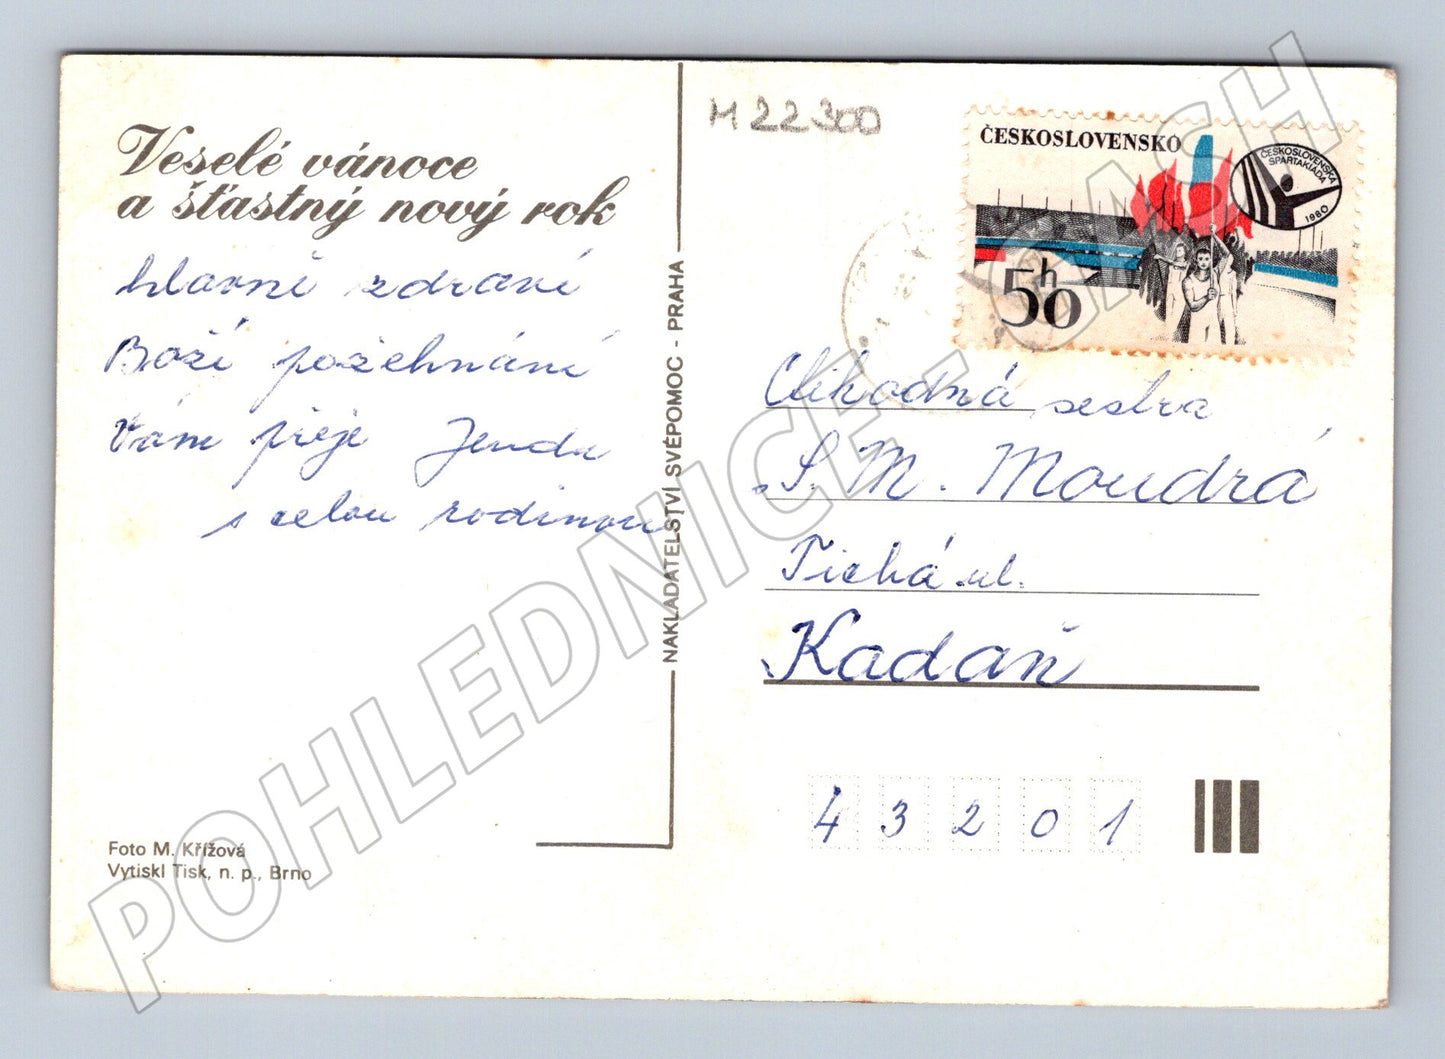 Veselé vánoce
a šťastný nový rok
hlavně zdraví
Boží požehnání
Vám přeje Jenda
s celou rodinou
Foto M. Křížová
Vytiskl Tisk, n. p., Brno
NAKLADATELSTVÍ SVÉPOMOC - PRAHA
M 22300
ČESKOSLOVENSKO
ČESKOSLOVENSKÁ
SPARTAKIÁDA
1980
50h
sestra
S. M. Moudrá
Tichá ul.
Kadaň
43201
POHLEDNICE - CASH